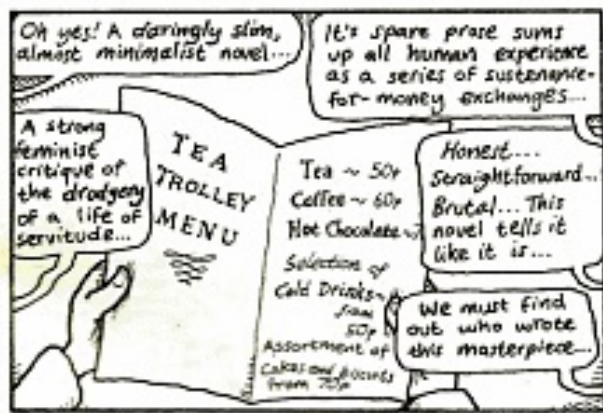 Oh yes! A daringly slim,
almost minimalist novel...
It's spare prose sums
up all human experience
as a series of sustenance-
for-money exchanges...
A strong
feminist
critique of
the drudgery
of a life of
servitude...
TEA
TROLLEY
MENU
Tea ~ 50p
Coffee ~ 60p
Hot Chocolate ~
Selection of
Cold Drinks ~
from
50p
Assortment of
Cakes and Biscuits
from
Honest...
Straightforward...
Brutal... This
novel tells it
like it is...
We must find
out who wrote
this masterpiece...